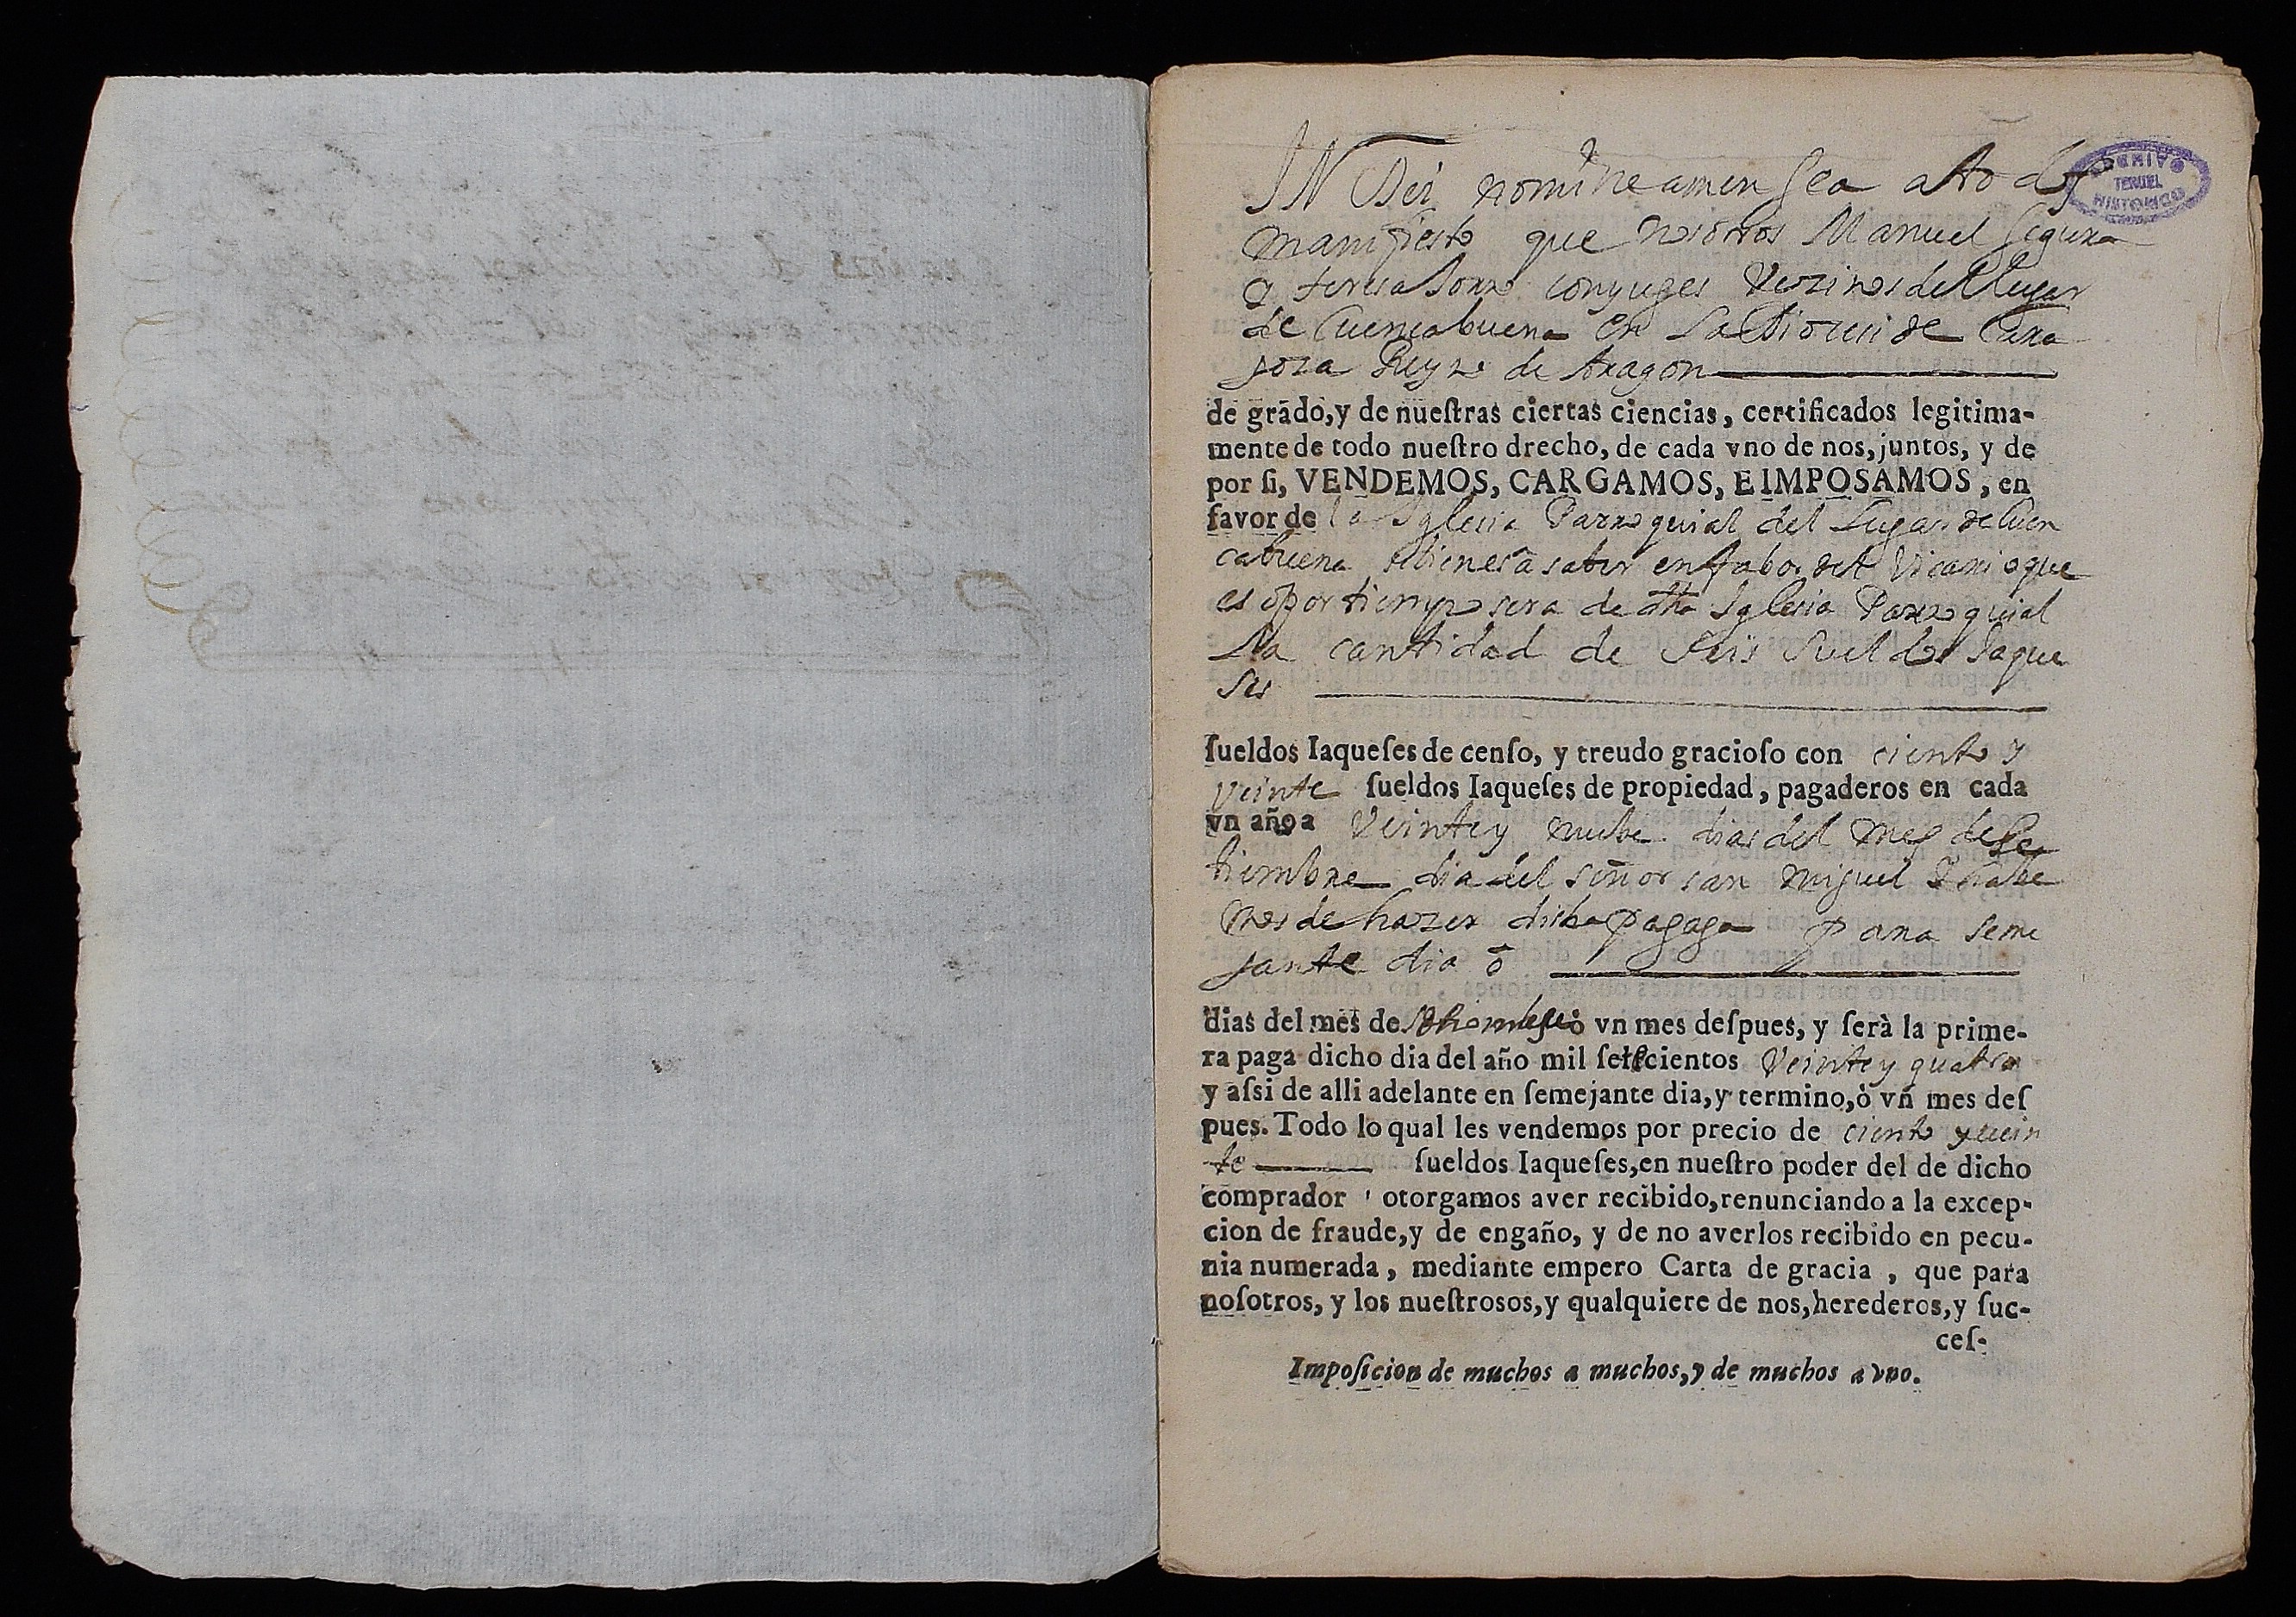 IN Dei nomine amen sea a todos
manifiesto que nosotros Manuel Segura
y teresa Sorro conyuges Vezinos del lugar
de Cuencabuena en la Dioeci de Cara
goza Reyno de Aragon
de grado, y de nueſtras ciertas ciencias, certificados legitima-
mente de todo nueſtro drecho, de cada vno de nos, juntos, y de
por ſi, VENDEMOS, CARGAMOS, E IMPOSAMOS, en
favor de la Iglesia Parroquial del Lugar de Cuen
cabuena si bienes a saber en fabor del Vicario que
es o por tiempo sera de dha Iglesia Parroquial
la cantidad de Seis Sueldos Jaque
ses
ſueldos Iaqueſes de cenſo, y treudo gracioſo con ciento y
veinte ſueldos Iaqueſes de propiedad, pagaderos en cada
vn año a Veinte y nuebe dias del mes de Se
tiembre dia del señor san Miguel
mos de hazer dicha pagaga para seme
jante dia ō
dias del mes de ò vn mes deſpues, y ſerà la prime-
ra paga dicho dia del año mil ſetecientos Veinte y quatro
y aſsi de alli adelante en ſemejante dia, y termino, ò vn mes deſ
pues. Todo lo qual les vendemos por precio de ciento y vein
te ſueldos Iaqueſes, en nueſtro poder del de dicho
comprador otorgamos aver recibido, renunciando a la excep-
cion de fraude, y de engaño, y de no averlos recibido en pecu-
nia numerada, mediante empero Carta de gracia, que para
noſotros, y los nueſtrosos, y qualquiere de nos, herederos, y ſuc-
ceſ-
Impoſicion de muchos a muchos, y de muchos a vno.
TERUEL
HISTORICO